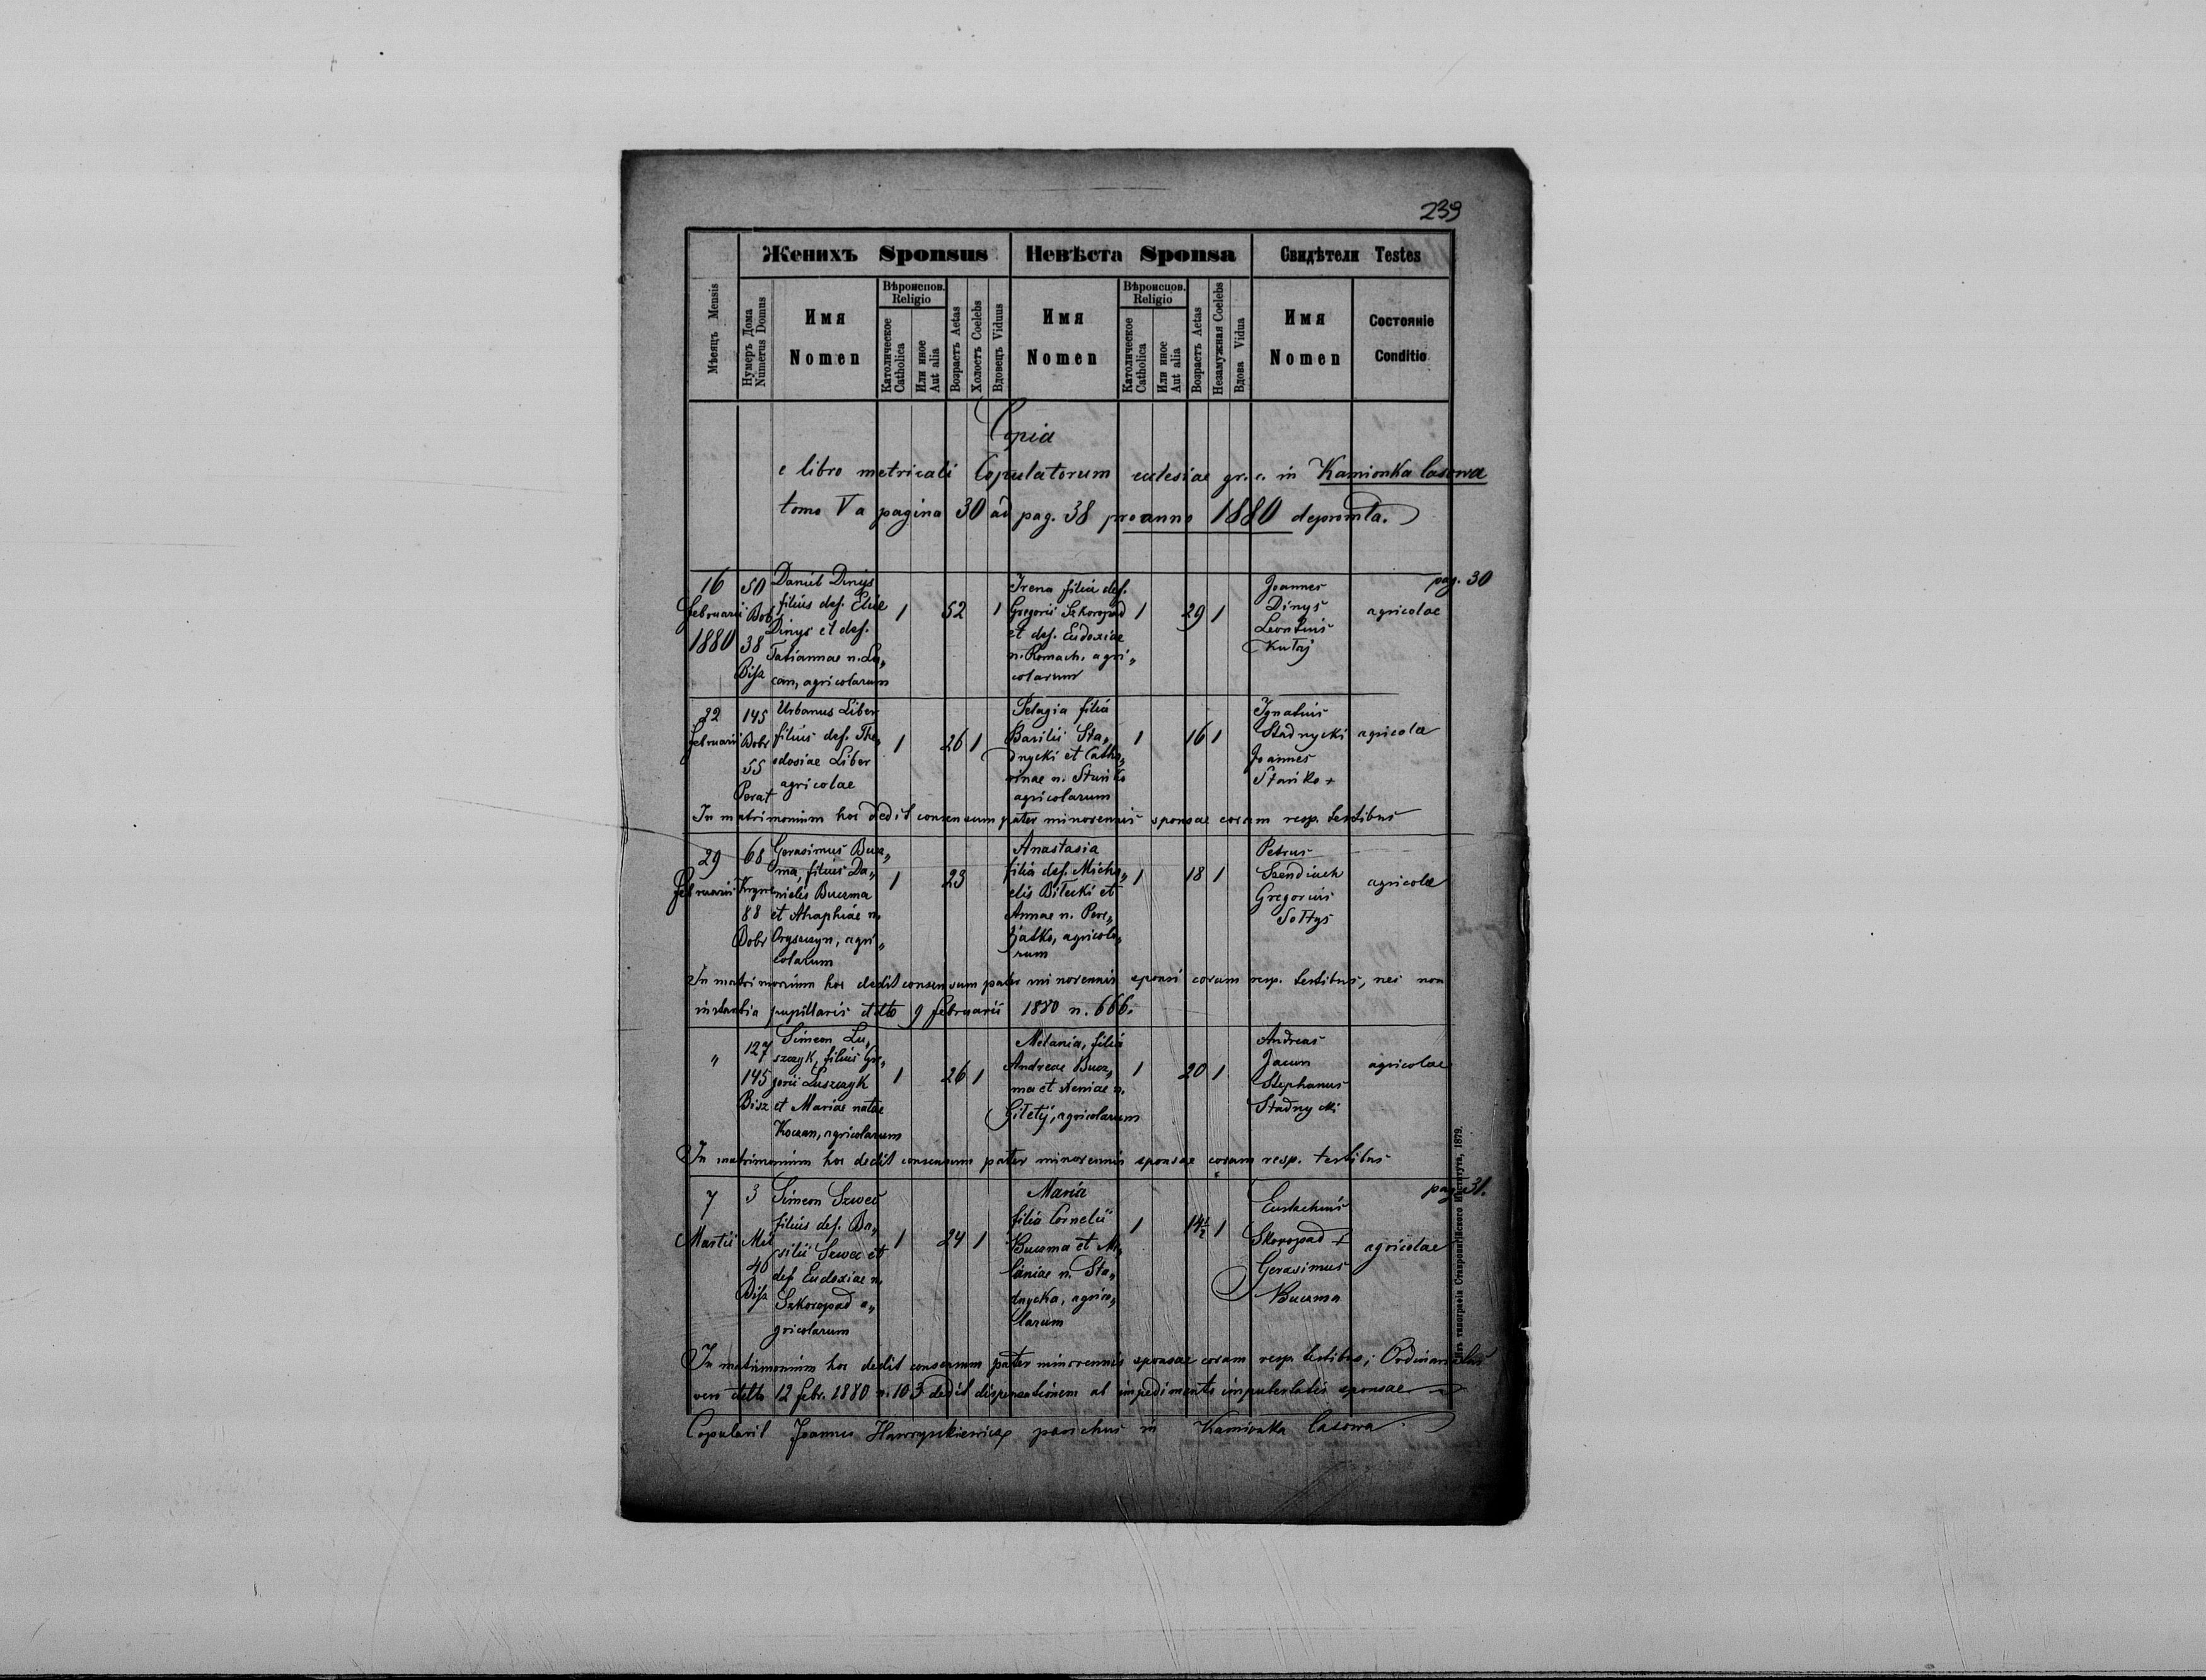 239
Женихъ Sponsus Невѣста Sponsa Свидѣтели Testes
Мѣсяцъ Mensis
Нумеръ Дома
Numerus Domus
Имя
Nomen
Вѣроиспов.
Religio
Католическое
Catholica
Или иное
Aut alia
Возрастъ Aetas
Холостъ Coelebs
Вдовецъ Viduus
Имя
Nomen
Вѣроиспов.
Religio
Католическое
Catholica
Или иное
Aut alia
Возрастъ Aetas
Незамужная Coelebs
Вдова Vidua
Имя
Nomen
Состояніе
Conditio
Copia
e libro metricali Copulatorum ecclesiae gr. c. in Kamionka lasowa
tomo V a pagina 30 ad pag. 38 pro anno 1880 depromta.
pag. 30
16
Februarii
1880
50
Dob
38
Bisz
Daniel Dinys
filius def. Eliae
Dinys et def.
Tatiannae n. Lu„
can, agricolarum
1 52 1
Irena filia def.
Gregorii Szkoropad
et def. Eudoxiae
n. Romach, agri„
colarum
1 29 1
Joannes
Dinys
Leontius
Kułaj
agricolae
22
Februarii
145
Dobr
55
Porat
Urbanus Liber
filius def. The„
odosiae Liber
agricolae
1 26 1
Pelagia filia
Basilii Sta„
dnycki et Catha„
rinae n. Stańko
agricolarum
1 16 1
Ignatius
Stadnycki
Joannes
Stańko +
agricolae
In matrimonium hoc dedit consensum pater minorennis sponsae coram resp. testibus
29
Februarii
68
88
Dobr
Gerasimus Bucz„
ma, filius Da„
nielis Buczma
et Ahaphiae n.
Oryszczyn, agri„
colarum
1 23
Anastasia
filia def. Micha„
elis Biłecki et
Annae n. Pere„
jatko, agricola„
rum
1 18 1
Petrus
Szendiuch
Gregorius
Sołtys
agricolae
In matrimonium hoc dedit consensum pater minorennis sponsi coram resp. testibus, nec non
instantia pupillaris ddto 9 februarii 1880 n. 666.
„
127
145
Bisz
Simeon Lu„
szczyk, filius Gre„
gorii Luszczyk
et Mariae natae
Koczan, agricolarum
1 26 1
Melania, filia
Andreae Bucz„
ma et Xeniae n.
Giletij, agricolarum
1 20 1
Andreas
Jacun
Stephanus
Stadnycki
agricolae
In matrimonium hoc dedit consensum pater minorennis sponsae coram resp. testibus
pag. 31.
7
Martii
3
Mił
40
Bisz
Simeon Szwec
filius def. Ba„
silii Szwec et
def. Eudoxiae n.
Szkoropad a„
gricolarum
1 24 1
Maria
filia Cornelii
Buczma et Me„
laniae n. Sta„
dnycka, agrico„
larum
1 14½ 1
Eustachius
Skoropad +
Gerasimus
Buczma
agricolae
In matrimonium hoc dedit consensum pater minorennis sponsae coram resp. testibus; Ordinariatus
vero ddto 12 febr. 1880 n. 103 dedit dispensationem ab impedimento impubertatis sponsae
Copulavit Joannes Hawryszkiewicz parochus in Kamionka lasowa
Изъ типографіи Ставропигійского Института, 1879.